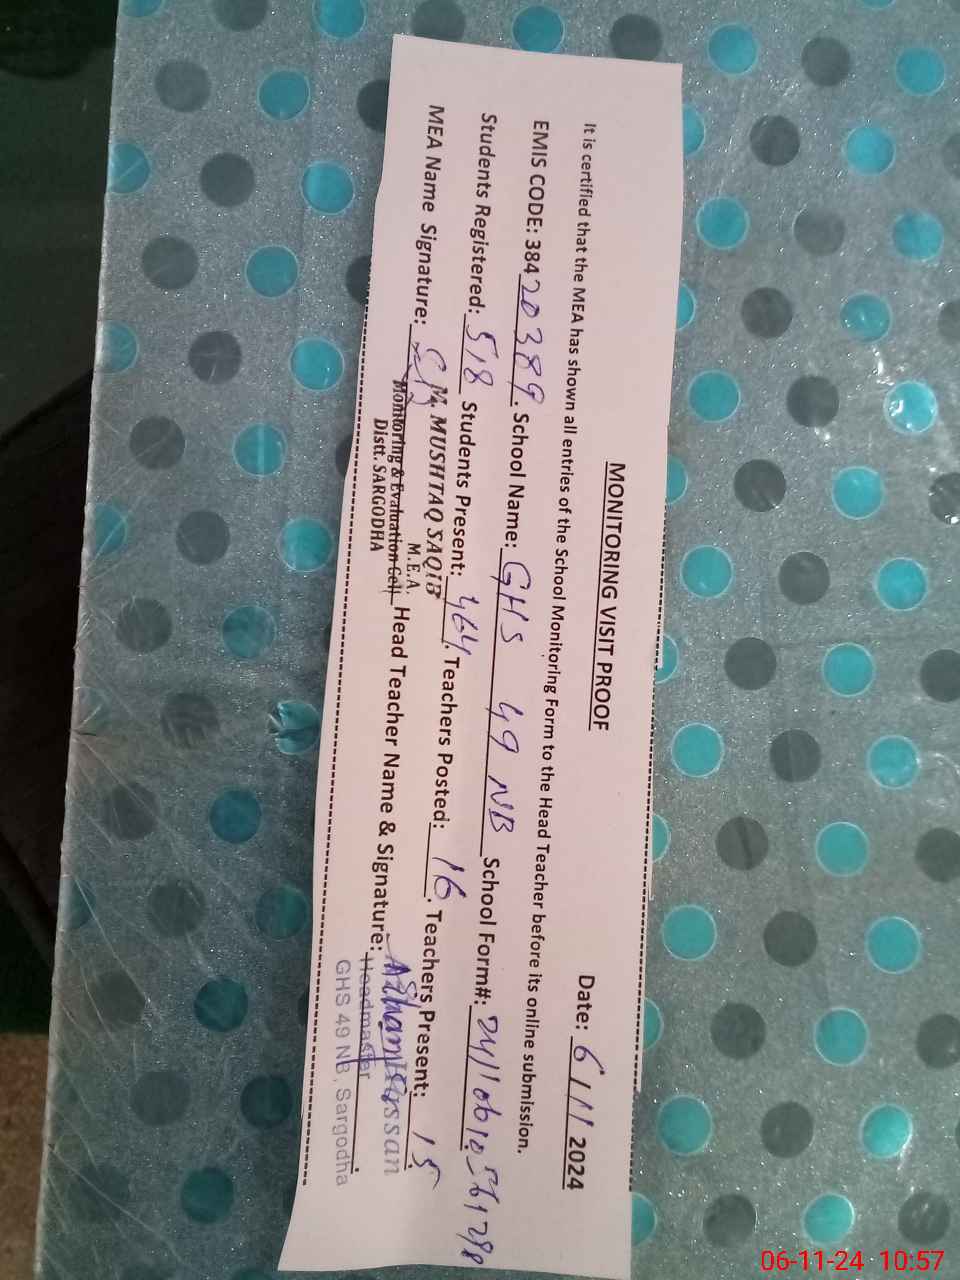 MONITORING VISIT PROOF
Date: 6/11/2024
It is certified that the MEA has shown all entries of the School Monitoring Form to the Head Teacher before its online submission.
EMIS CODE: 38420389. School Name: GHS 49 NB School Form#:
Students Registered: 518 Students Present: 464. Teachers Posted: 16. Teachers Present: 15
MEA Name Signature: M. MUSHTAQ SAQIB Head Teacher Name & Signature:
M.E.A.
Monitoring & Evaluation Cell
Distt. SARGODHA
Headmaster
GHS 49 NB, Sargodha
06-11-24 10:57